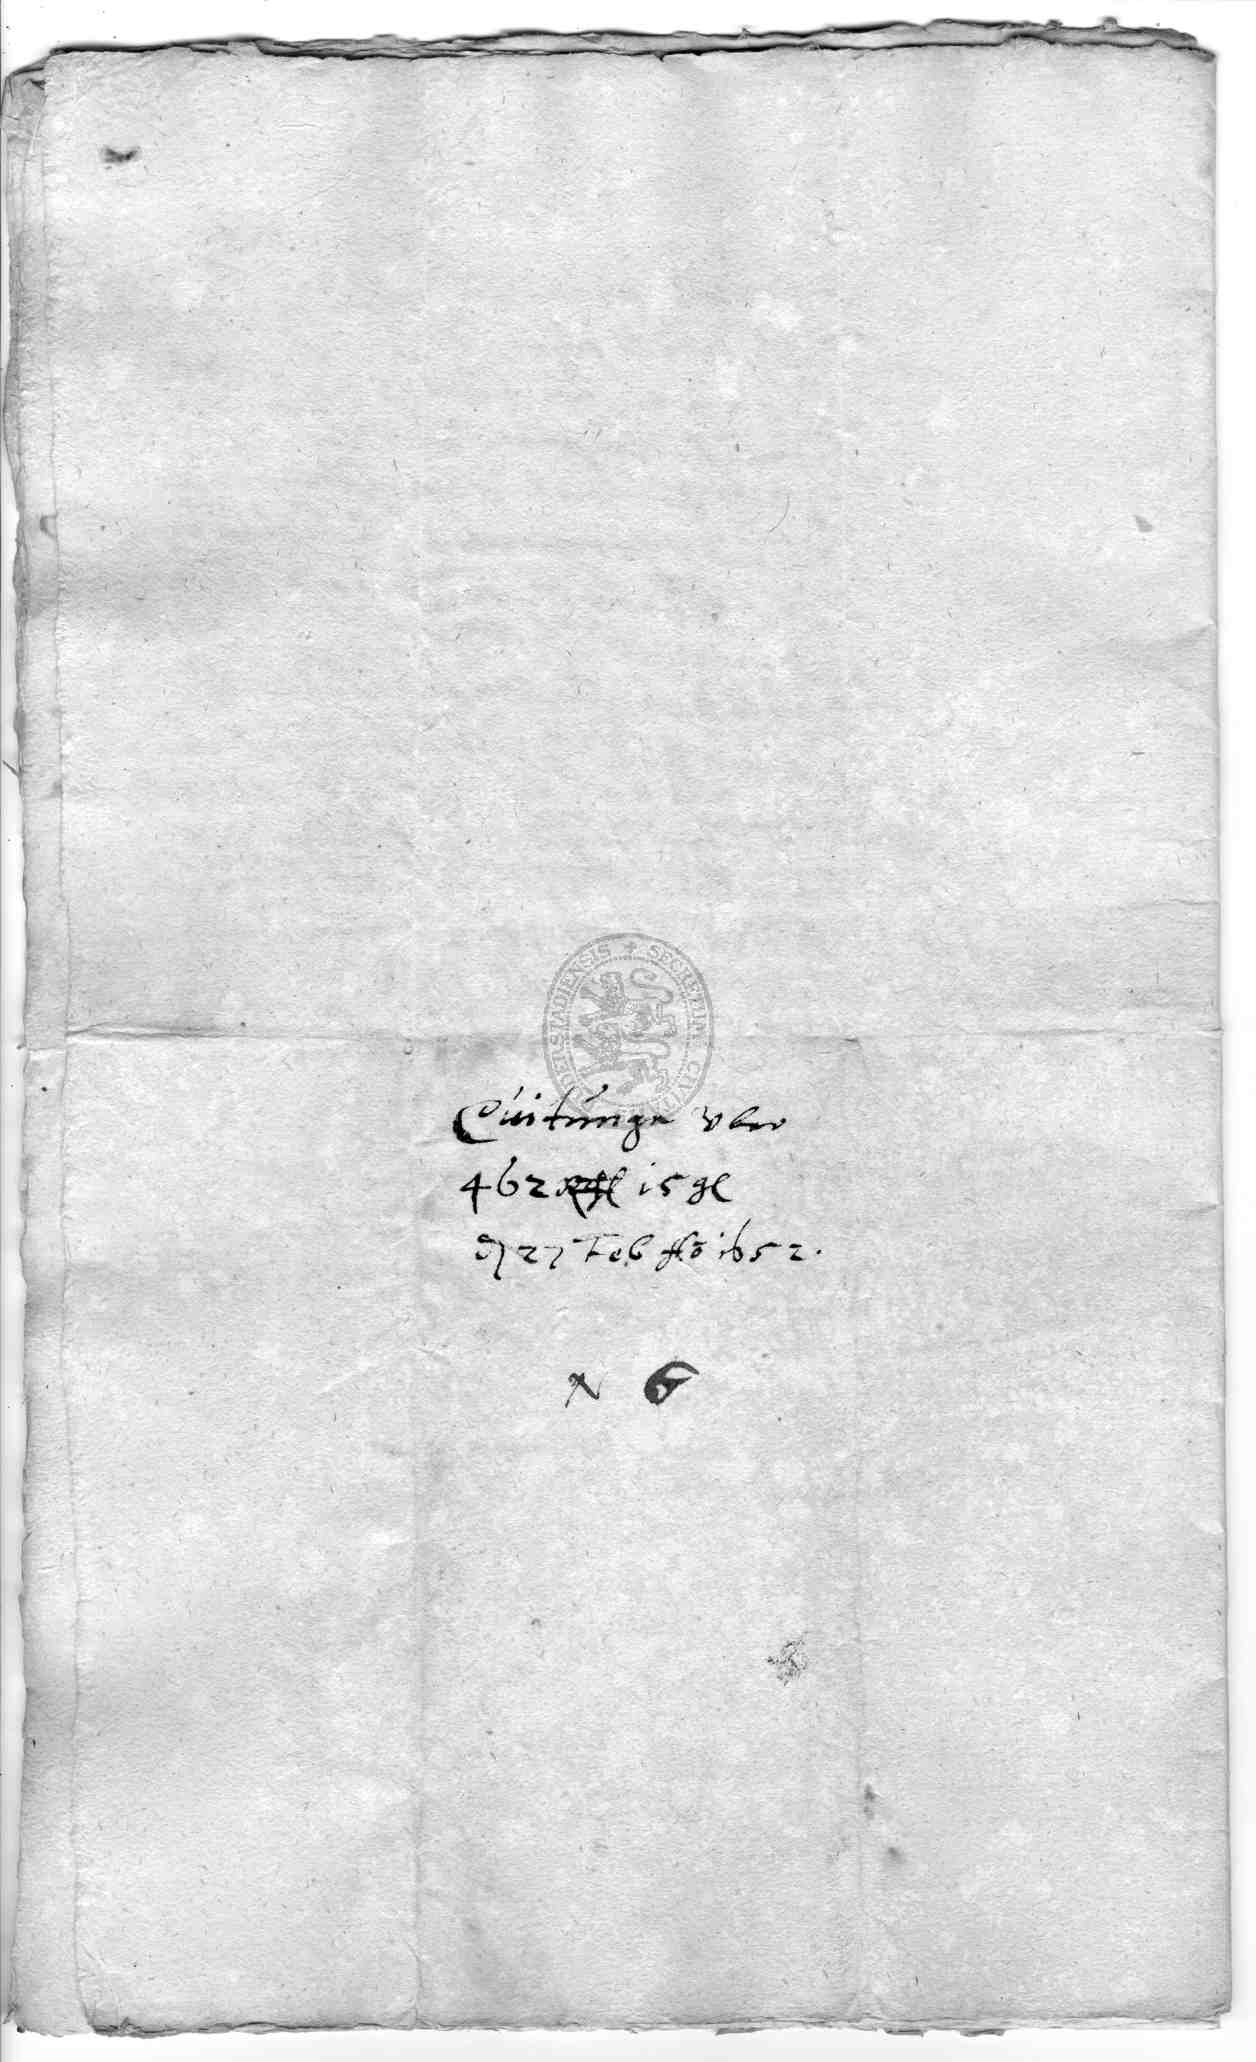 SECRETUM CIVI DERSTADIENSIS
Quitunge vber
462 15 gl
27 Feb Ao 1652.
N 6